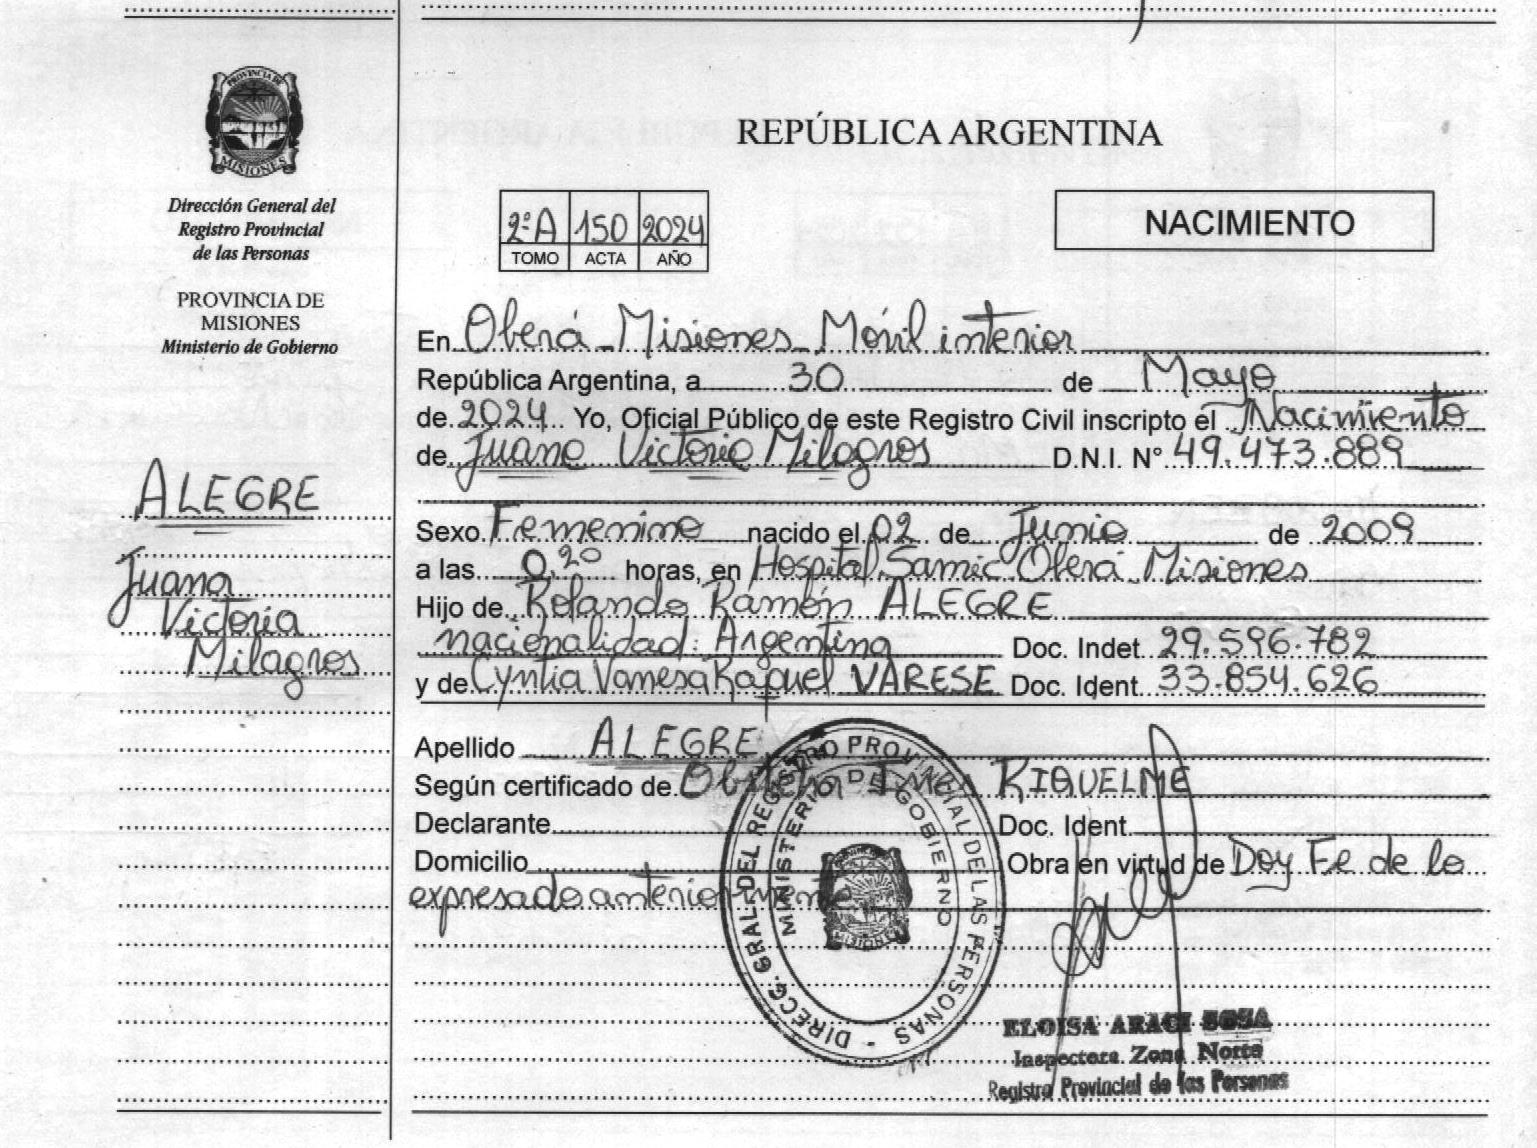 PROVINCIA DE
MISIONES
Dirección General del
Registro Provincial
de las Personas
PROVINCIA DE
MISIONES
Ministerio de Gobierno
ALEGRE
Juana
Victoria
Milagros
REPÚBLICA ARGENTINA
2ºA 150 2024
TOMO ACTA AÑO
NACIMIENTO
En Oberá - Misiones - Móvil interior
República Argentina, a 30 de Mayo
de 2024 Yo, Oficial Público de este Registro Civil inscripto el Nacimiento
de Juana Victoria Milagros D.N.I. N° 49.473.889
Sexo Femenino nacido el 02 de Junio de 2009
a las 0,20 horas, en Hospital Samic Oberá - Misiones
Hijo de Rolando Ramón ALEGRE
nacionalidad: Argentina Doc. Indet 29.596.782
y de Cyntia Vanesa Raquel VARESE Doc. Ident. 33.854.626
Apellido ALEGRE
Según certificado de Obstetra RIQUELME
Declarante Doc. Ident.
Domicilio Obra en virtud de Doy Fe de lo
expresado anteriormente
DIRECC. GRAL. DEL REGISTRO PROVINCIAL DE LAS PERSONAS -
MINISTERIO DE GOBIERNO
MISIONES
ELOISA ARACI SOSA
Inspectora Zona Norte
Registro Provincial de las Personas